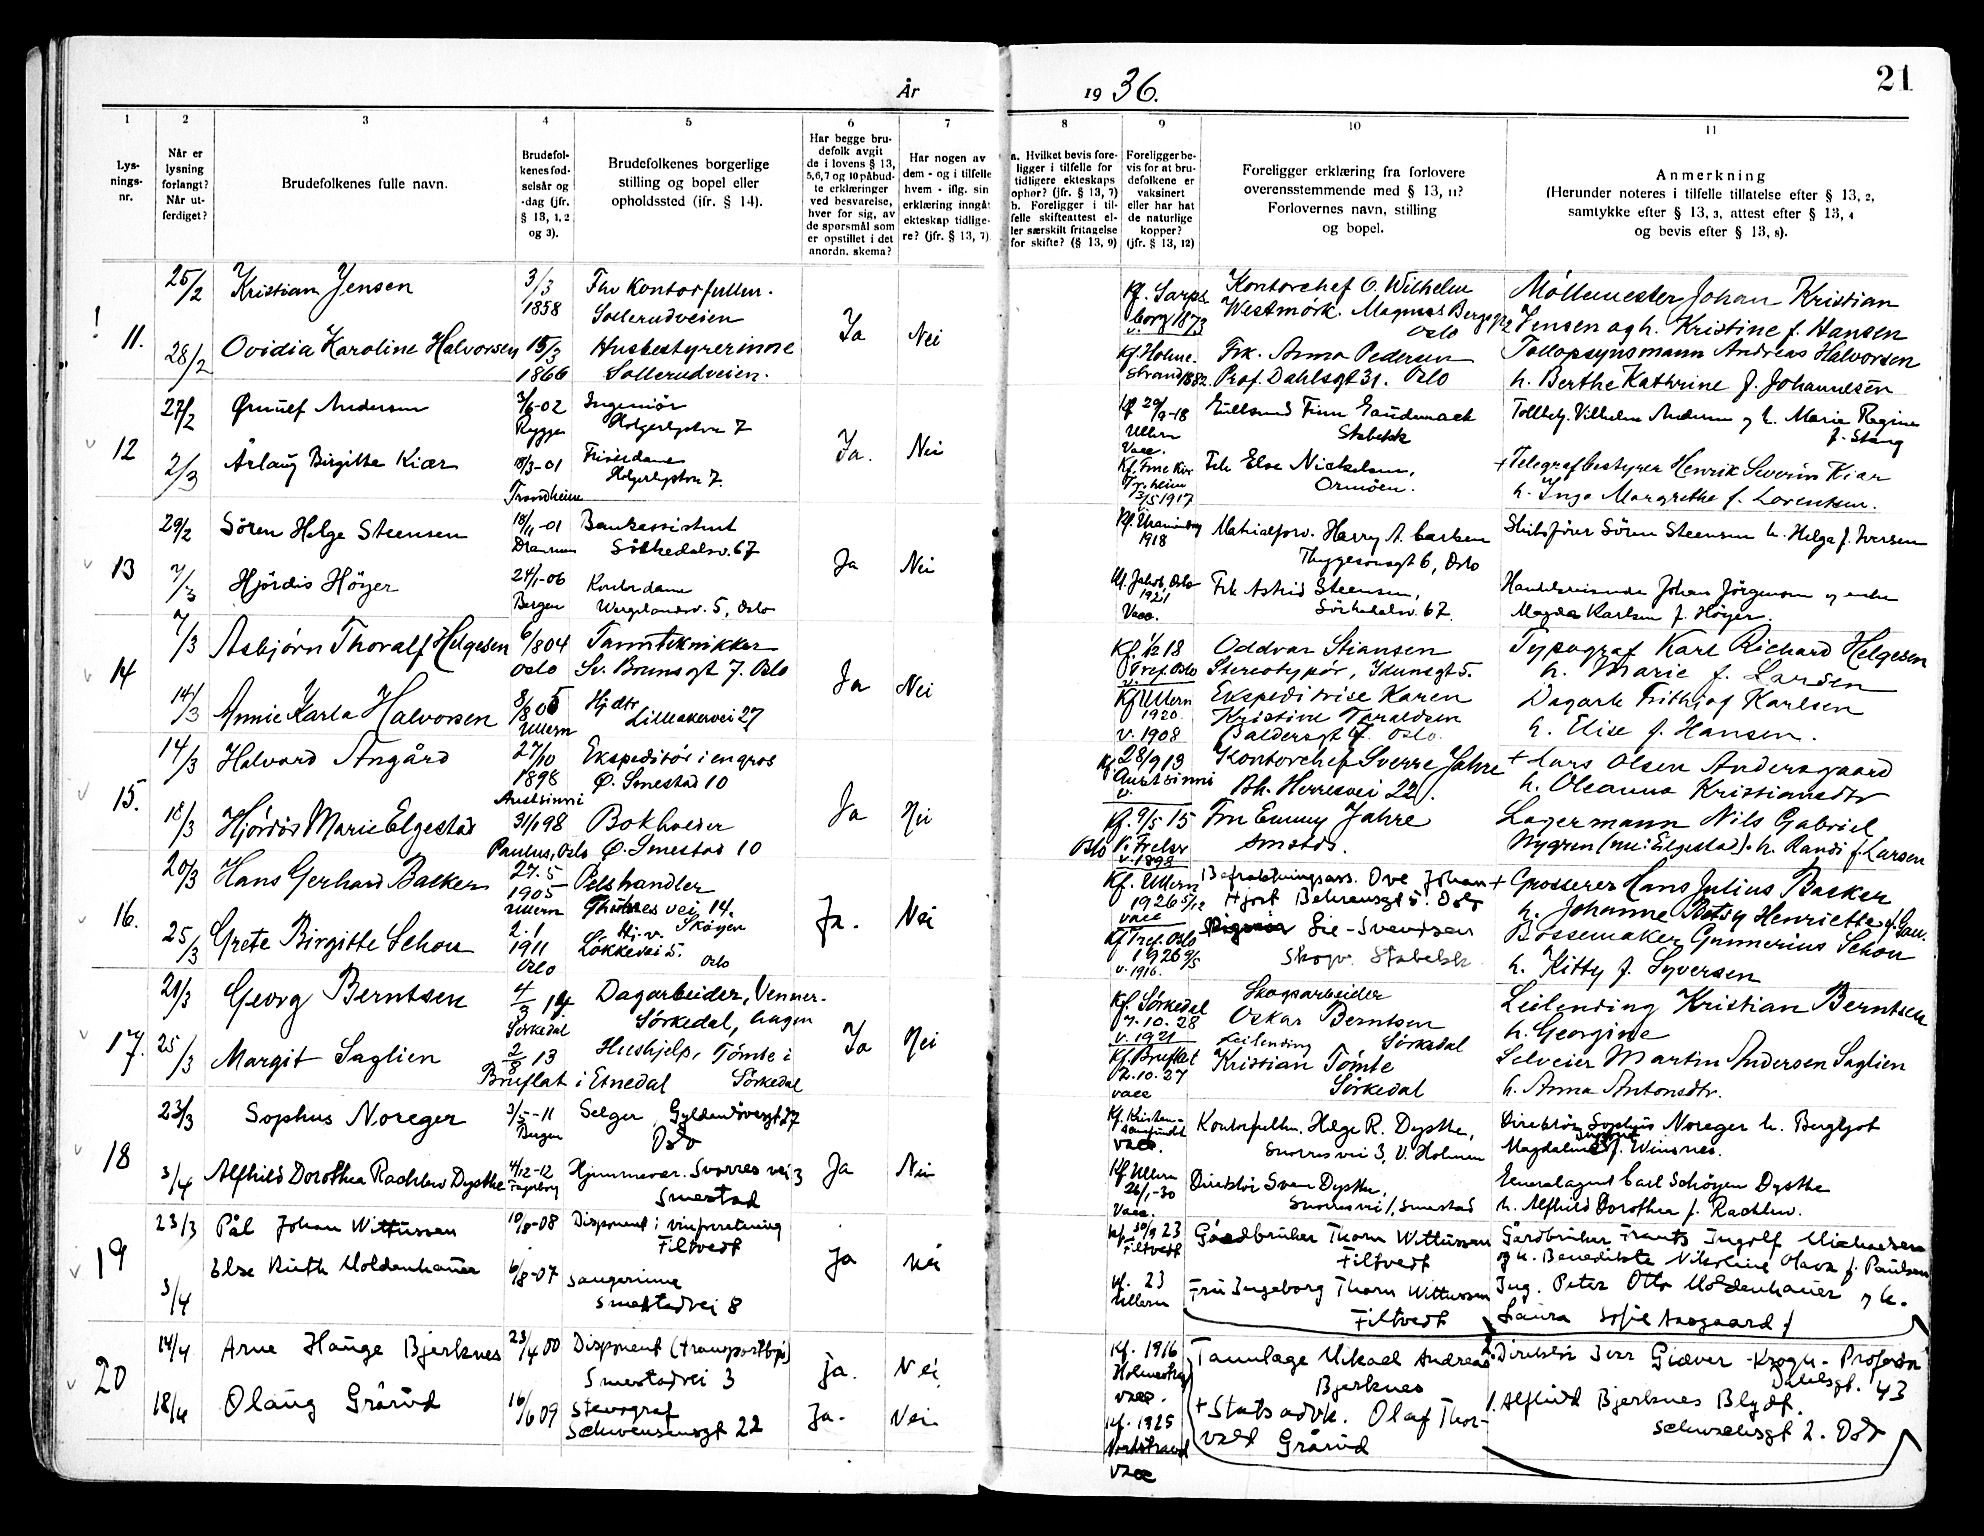 År 1936.
21
1
2
3
4
5
6
7
8
9
10
11
Lys-
nings-
nr.
Når er
lysning
forlangt?
Når ut-
ferdiget?
Brudefolkenes fulle navn.
Brudefol-
kenes fød-
selsår og
-dag (jfr.
§ 13, 1, 2
og 3).
Brudefolkenes borgerlige
stilling og bopel eller
opholdssted (ifr. § 14).
Har begge bru-
defolk avgit
de i lovens § 13,
5,6,7 og 10 påbud-
te erklæringer
ved besvarelse,
hver for sig, av
de spørsmål som
er opstillet i det
anordn. skema?
Har nogen av
dem - og i tilfelle
hvem - iflg. sin
erklæring inngåt
ekteskap tidlige-
re? (jfr. § 13, 7)
a. Hvilket bevis fore-
ligger i tilfelle for
tidligere ekteskaps
ophør? (jfr. § 13, 7)
b. Foreligger i til-
felle skifteattest el-
ler særskilt fritagelse
for skifte? (§ 13, 9)
Foreligger be-
vis for at bru-
defolkene er
vaksinert
eller har hat
de naturlige
kopper?
(jfr. § 13, 12)
Foreligger erklæring fra forlovere
overensstemmende med § 13, 11?
Forlovernes navn, stilling
og bopel.
Anmerkning
(Herunder noteres i tilfelle tillatelse efter § 13, 2,
samtykke efter § 13, 3, attest efter § 13, 4
og bevis efter § 13, 8).
11.
25/2 Kristian Jensen 3/3 1858 Fhv Kontorfullm. Sollerudveien
28/2 Ovidia Karoline Halvorsen 15/3 1866 Husbestyrerinne Sollerudveien.
Ja Nei
Kf. Sarpsborg 1873 v.
Kontorchef O. Wilhelm
Westmørk. Magnus Bergsgt 2 Oslo
Møllemester Johan Kristian
Jensen og h. Kristine f. Hansen
Kf. Holmestrand 1882.
Frk. Anna Pedersen
Prof. Dahlsgt 31. Oslo
Tollopsynsmann Andreas Halvorsen
h. Berthe Kathrine f. Johannesen
12
27/2 Ørnulf Andersen 3/6-02 Rygge Ingeniør Holgerlystvn 7
2/3 Åslaug Birgitte Kiær 18/3-01 Trondheim Frisérdame Holgerlystvn 7.
Ja. Nei
Kf 29/9-18 Ullern Vacc.
Finn Gaudernack
Stabekk
Tollbetj. Vilhelm Andersen og h. Marie Regine
f. Stang
Tr.heim 13/5 1917
Frk Else Nickelsen,
Ormöen.
+ Telegrafbestyrer Henrik Severin Kiær
h. Inga Margrethe f. Lorentzen.
13
29/2 Sören Helge Steensen 18/11-01 Drammen Bankassistent Sörkedalsv. 67
7/3 Hjördis Höyer 24/1-06 Bergen Kontordame Wergelandsv. 5, Oslo
Ja Nei
Kf. Uranienborg 1918
Materialforv. Harry A. Carlsen
Thygesonsgt 6, Oslo
Skibsfører Sören Steensen h. Helga f. Iversen
Kf. Jakob, Oslo 1921 Vacc.
Frk Astrid Steensen,
Sörkedalsv. 67.
Handelsreisende Johan Jörgensen og enke
Magda Karlsen f. Höyer.
14
7/3 Asbjørn Thoralf Helgesen 6/8 04 Oslo Tanntekniker Sv. Brunsgt 7. Oslo
14/3 Annie Karla Halvorsen 8/8 05 Ullern Hj dtr. Lilleakervei 27
Ja Nei
Kf. 1/12 18 Tref. Oslo v.
Oddvar Stiansen
Stereotypør, Idunsgt 5.
Typograf Karl Richard Helgesen
h. Marie f. Larsen
Kf Ullern 1920. v. 1908
Ekspeditrise Karen
Kristine Taraldsen
Baldersgt 9. Oslo.
Dagarb Frithjof Karlsen
h. Elise f. Hansen.
15.
14/3 Halvard Angård 27/10 1898 Austsinni Ekspeditör i engros Ø. Smestad 10
18/3 Hjördis Marie Elgestad 31/1 98 Paulus, Oslo Bokholder Ø. Smestad 10
Ja Nei
Kf 28/9 13 Austsinni v.
Kontorchef Sverre Jahre
Bh. Herresvei 22.
+ Lars Olsen Andersgaard
h. Oleanna Kristiansdtr
Kf. 9/5 15 Oslo v. 1898
Fru Emmy Jahre
Smstds.
Lagermann Nils Gabriel
Nygren (nu: Elgestad). h. Randi f. Larsen
16.
20/3 Hans Gerhard Backer 27.5 1905 Ullern Pelshandler Thunes vei 14. Skøyen
25/3 Grete Birgitte Schou 2.1 1911 Oslo Hj.v. Løkkevei 5. Oslo
Ja. Nei
Kf. Ullern 1926 5/12 vacc
Befraktningsass. Ove Johan
Hjort Behrensgt 5. Oslo
+ Grosserer Hans Julius Backer
h. Johanne Betsy Henriette f. Gau.
Kf Tref. Oslo 1926 9/5 v. 1916.
Lie-Svendsen
Skogv. Stabekk
Bossemaker Gunnerius Schou
h. Kitty f. Syversen
17.
21/3 Georg Berntsen 4/3 14 Sørkedal Dagarbeider, Vennerhagen Sørkedal,
25/3 Margit Saglien 2/8 13 Bruflat i Etnedal Hushjelp, Tömte i Sörkedal
Ja Nei
Kf. Sørkedal 7.10.28 v. 1921
Skogsarbeider
Oskar Berntsen
Sörkedal
Leilending Kristian Berntsen
h. Georgine
Kf. Bruflat 2.10.27 vacc
Leilending
Kristian Tömte
Sörkedal
Selveier Martin Andersen Saglien
h. Anna Antonsdtr.
18
23/3 Sophus Noreger 3/5-11 Bergen Selger, Gyldenlövesgt 27 Oslo
3/4 Alfhild Dorothea Rachlew Dysthe 4/12-12 Fagerborg Hjemmevær. Snorres vei 3 Smestad
Ja Nei
Kf. Kristensamfundet vacc.
Kontorfullm. Helge R. Dysthe,
Snorresvei 3, V. Holmen
Direktör Sophus Noreger h. Bergljot
Magdalene f. Winsnes.
Kf Ullern 26/1-30 Vacc.
Direktör Sven Dysthe,
Snorresvei 1, Smestad
Generalagent Carl Schöyen Dysthe
h. Alfhild Dorothea f. Rachlew.
19
23/3 Pål Johan Wittussen 10/8-08 Disponent i vinforretning Filtvedt
3/4 Else Ruth Moldenhauer 6/8-07 Sangerinne Smestadvei 8
Ja Nei
kf. 30/9 23 Filtvedt
Gårdbruker Thorn Wittussen
Filtvedt
Gårdbruker Frants Ingolf Michaelsen
og h. Benedikte Nikoline Olava f. Paulsen
kf. 23 Ullern
Fru Ingeborg Thorn Wittussen
Filtvedt
Ing. Peter Otto Moldenhauer og h.
Laura Sofie Aasgaard
20
14/4 Arne Hauge Bjerknes 23/4 00 Disponent (transportbyrå) Smestadvei 3 Ja. Nei
18/4 Olaug Grårud 16/6 09 Stenograf Schwensensgt 22 Ja. Nei
Kf. 1916 Holmestrand vacc.
Tannlæge Mikael Andreas
Bjerknes
1. Direktör Iver Giæver-Krogh - Professor
Dahlsgt. 43
Kf. 1925 Nordstrand vacc
+ Statsadvk. Olaf Thor-
vald Grårud
1. Alfhild Bjerknes Blydt.
Schwachsgt 2. Oslo